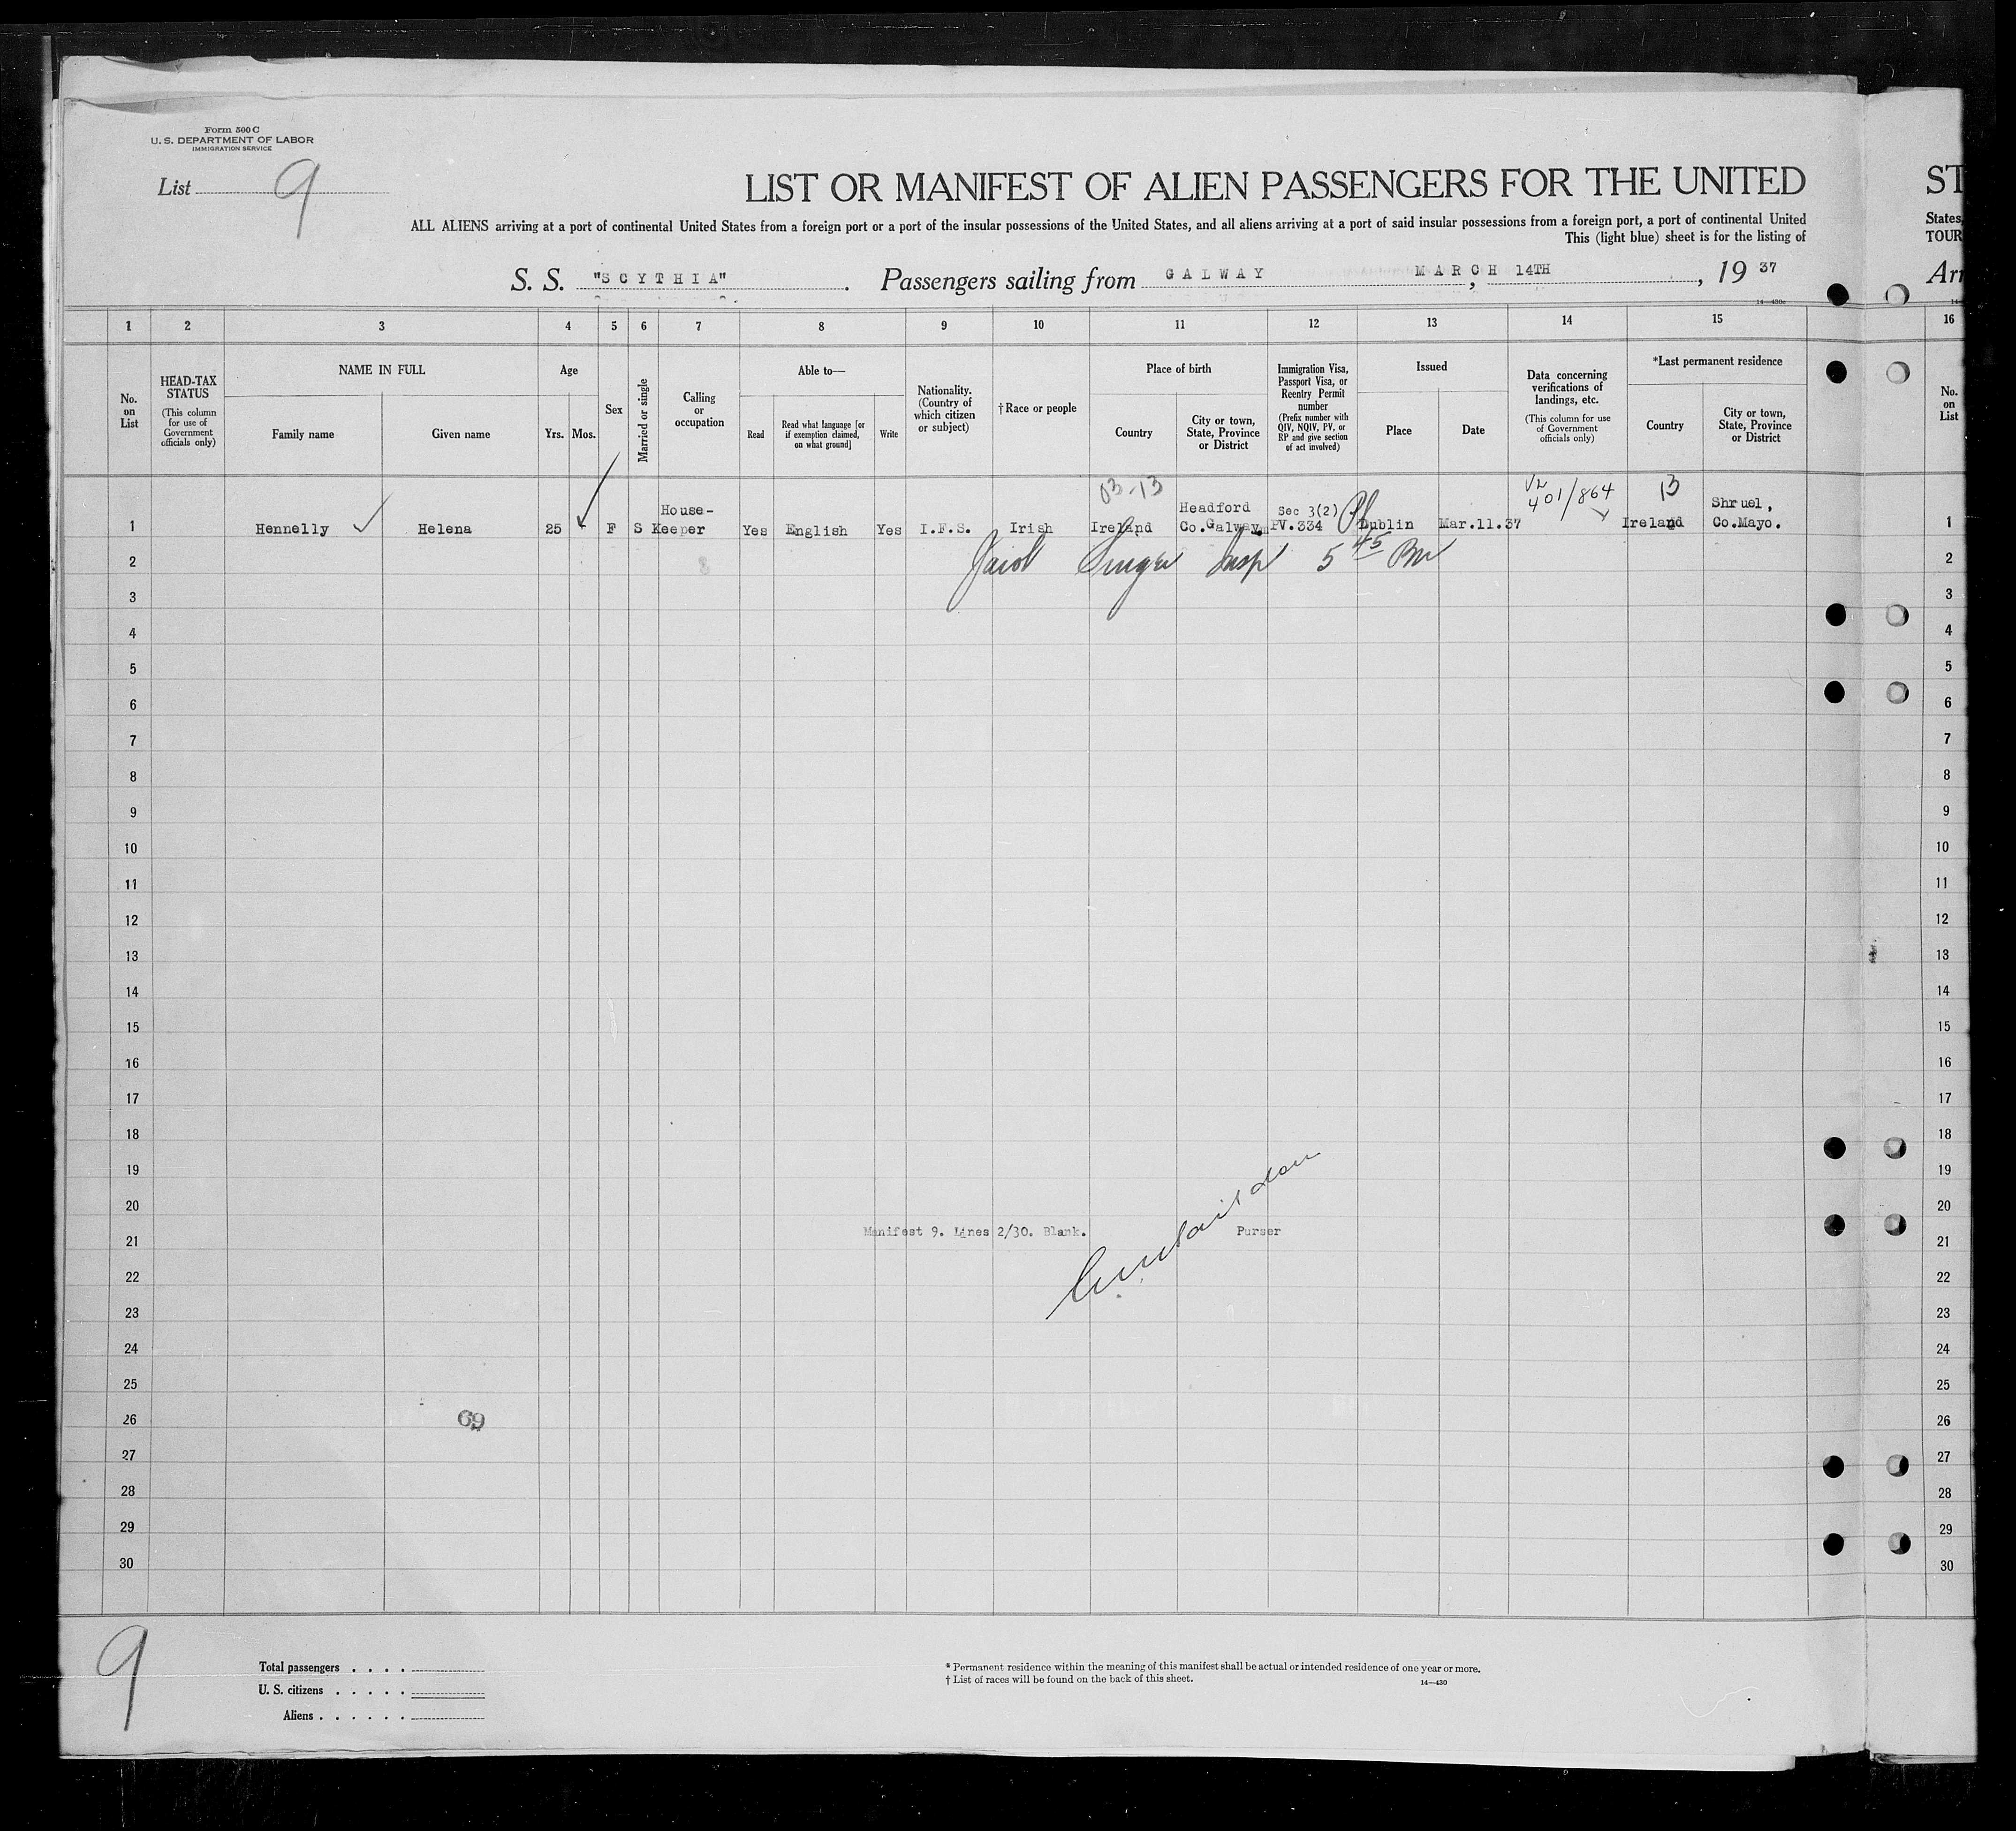 Form 500 C
U. S. DEPARTMENT OF LABOR
IMMIGRATION SERVICE
List 9
LIST OR MANIFEST OF ALIEN PASSENGERS FOR THE UNITED
ST
ALL ALIENS arriving at a port of continental United States from a foreign port or a port of the insular possessions of the United States, and all aliens arriving at a port of said insular possessions from a foreign port, a port of continental United
States,
This (light blue) sheet is for the listing of
TOUR
S. S. "SCYTHIA". Passengers sailing from GALWAY, MARCH 14TH, 19 37
Arr
14—430c
1 2 3 4 5 6 7 8 9 10 11 12 13 14 15 16
No. on List
HEAD-TAX STATUS
(This column for use of Government officials only)
NAME IN FULL
Family name
Given name
Age
Yrs. Mos.
Sex
Married or single
Calling or occupation
Able to—
Read
Read what language [or if exemption claimed, on what ground]
Write
Nationality. (Country of which citizen or subject)
†Race or people
Place of birth
Country
City or town, State, Province or District
Immigration Visa, Passport Visa, or Reentry Permit number
(Prefix number with QIV, NQIV, PV, or RP and give section of act involved)
Issued
Place
Date
Data concerning verifications of landings, etc.
(This column for use of Government officials only)
*Last permanent residence
Country
City or town, State, Province or District
No. on List
03-13
√2 401/864
13
1 Hennelly Helena 25 F S House-Keeper Yes English Yes I.F.S. Irish Ireland Headford Co.Galway. Sec 3(2) PV.334 Dublin Mar.11.37 Ireland Shruel, Co.Mayo. 1
2 Jacob Singer Insp 5 45 PM 2
3 3
4 4
5 5
6 6
7 7
8 8
9 9
10 10
11 11
12 12
13 13
14 14
15 15
16 16
17 17
18 18
19 19
20 20
Manifest 9. Lines 2/30. Blank. Purser
21 21
22 22
23 23
24 24
25 25
26 69 26
27 27
28 28
29 29
30 30
9
Total passengers . . . .
U. S. citizens . . . . .
Aliens . . . . . .
* Permanent residence within the meaning of this manifest shall be actual or intended residence of one year or more.
† List of races will be found on the back of this sheet.
14—430